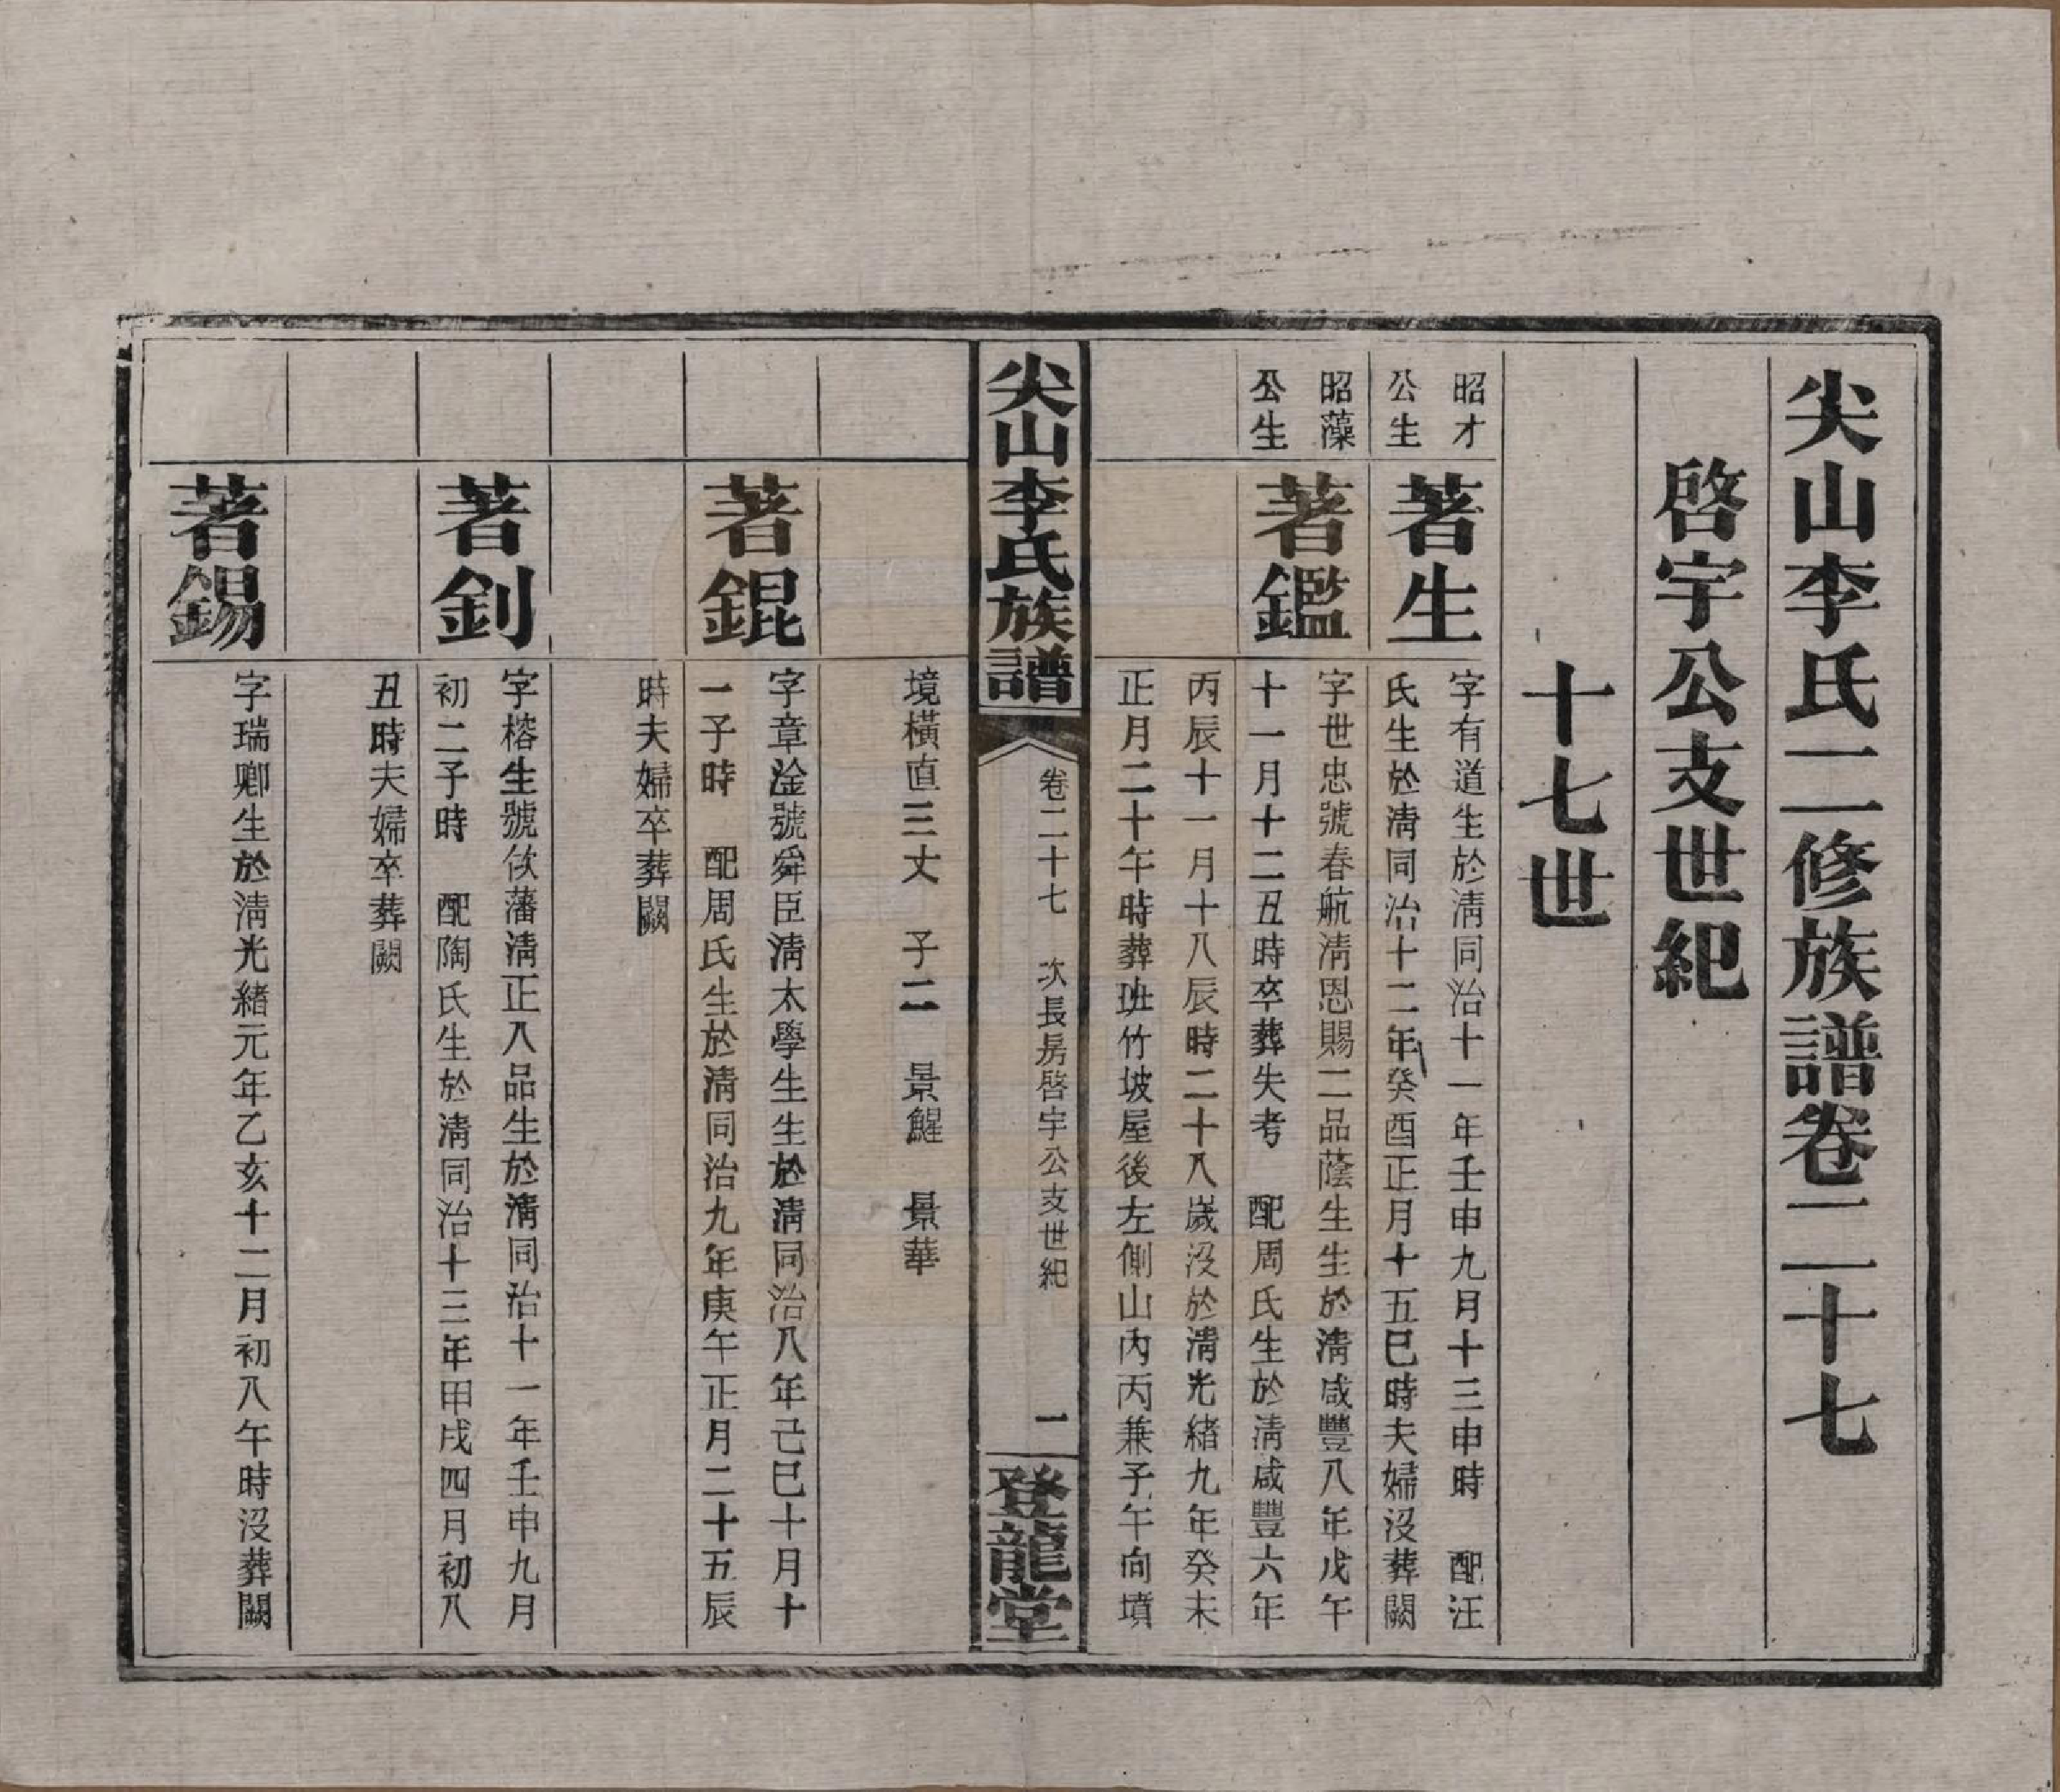 尖山李氏二修族譜卷二十七
啓宇公支世紀
十七世
昭才
公生
著生
字有道生於淸同治十一年壬申九月十三申時　配汪
氏生於淸同治十二年癸酉正月十五巳時夫婦沒葬闕
昭藻
公生
著鑑
字世忠號春航淸恩賜二品蔭生生於淸咸豐八年戊午
十一月十二丑時卒葬失考　配周氏生於淸咸豐六年
丙辰十一月十八辰時二十八歲沒於淸光緖九年癸未
正月二十午時葬班竹坡屋後左側山內丙兼子午向墳
尖山李氏族譜
卷二十七　次長房啓宇公支世紀
一
登龍堂
境橫直三丈　子二　景鯹　景華
著錕
字章淦號舜臣淸太學生生於淸同治八年己巳十月十
一子時　配周氏生於淸同治九年庚午正月二十五辰
時夫婦卒葬闕
著釗
字榕生號佽藩淸正八品生於淸同治十一年壬申九月
初二子時　配陶氏生於淸同治十三年甲戌四月初八
丑時夫婦卒葬闕
著錫
字瑞卿生於淸光緖元年乙亥十二月初八午時沒葬闕